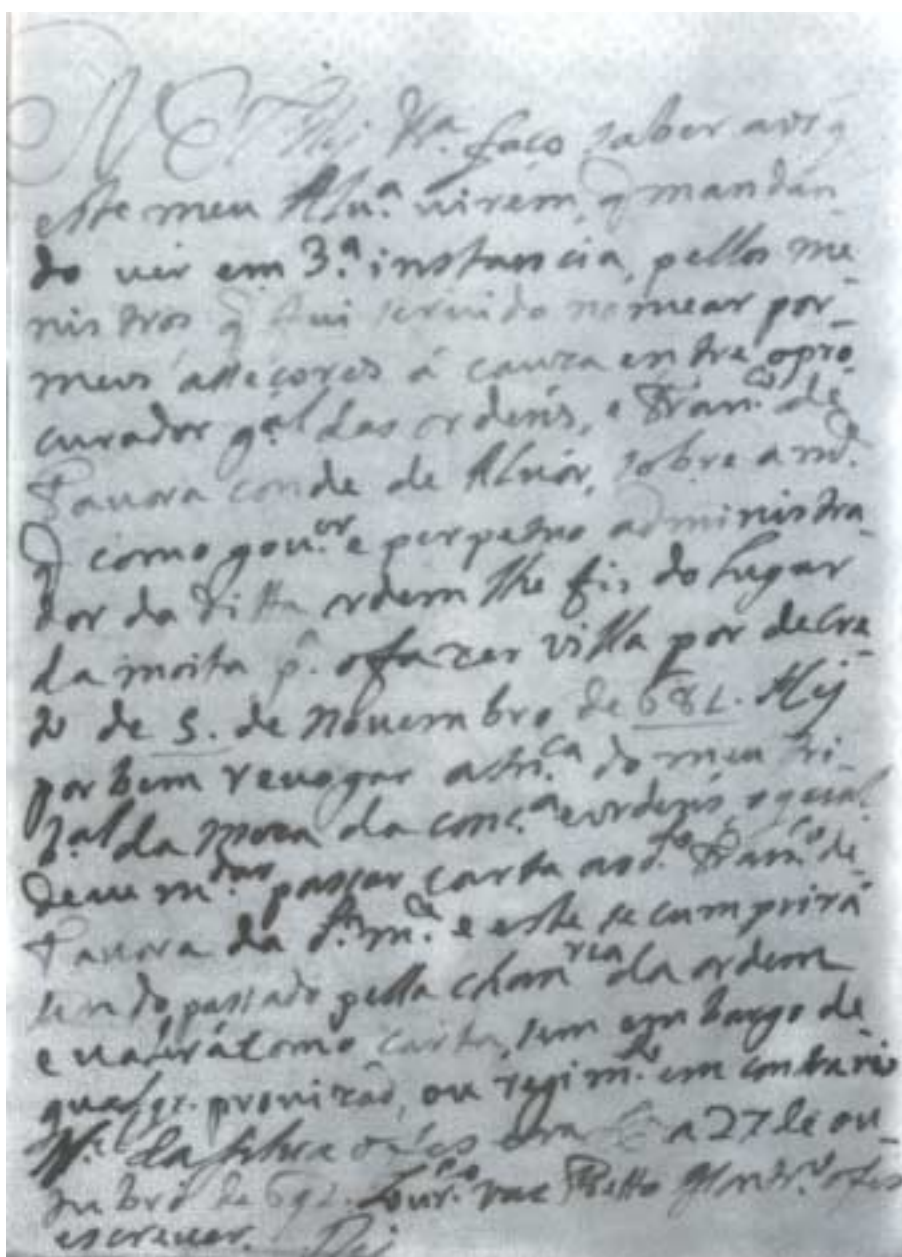 faço saber aos q
este meu Alu.ª virem, q mandan
do ver em 3.ª instancia, pellos me
nistros q fui seruido nomear por
meus assecores á cauza entre o pro
curador g.al das ordens, e Fran.co de
Tauora conde de Aluor, sobre a m.ce
q como gou.or e perpetuo administra
dor da ditta ordem lhe fis do lugar
da moita p.ª o fazer villa por decre
to de 5. de Nouembro de 681. Hej
por bem reuogar a sn.ca do meu tri
b.al da meza da conc.ª e ordens, o qual
deue m.dar passar carta ao d.to Fran.co de
Tauora da d.ta m.ce e este se cumprirá
sendo passado pella chan.ria da ordem
e valerá como carta, sem embargo de
qualqr. prouizaõ, ou regim.to em contrario
M.el da silua o fes em a 27 de ou
tubro de 691. o fes
escreuer. Rej